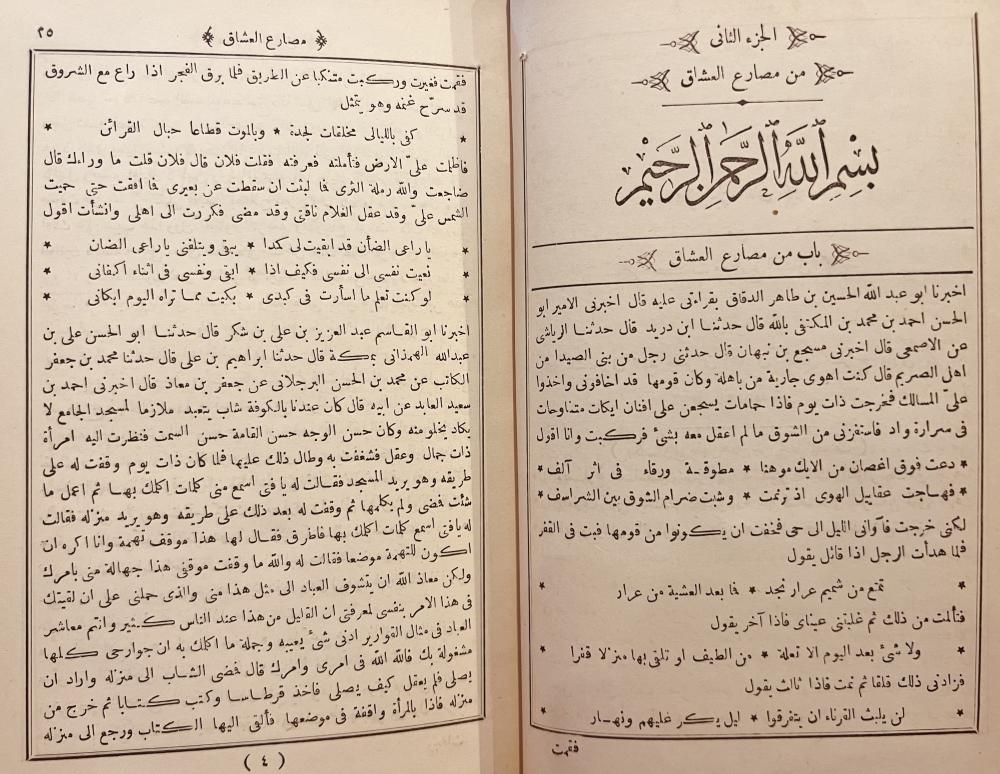 الجزء الثانى
من مصارع العشاق
بسم الله الرحمن الرحيم
باب من مصارع العشاق
اخبرنا ابو عبد الله الحسين بن طاهر الدقاق بقراءتى عليه قال اخبرنى الامير ابو
الحسن احمد بن محمد بن المكتفى بالله قال حدثنا ابن دريد قال حدثنا الرياشى
عن الاصمعى قال اخبرنى مسجع بن نبهان قال حدثنى رجل من بنى الصيدا من
اهل الصريم قال كنت اهوى جارية من باهلة وكان قومها قد اخافونى واخذوا
علىّ المسالك فخرجت ذات يوم فاذا حمامات يسجعن على افنان ايكات متناوحات
فى سرارة واد فاستفزنى من الشوق ما لم اعقل معه بشئ فركبت وانا اقول
* دعت فوق اغصان من الايك موهنا * مطوقة ورقاء فى اثر آلف *
* فهاجت عقابيل الهوى اذ ترنمت * وشبت ضرام الشوق بين الشراسف *
لكنى خرجت فآوانى الليل الى حى فخفت ان يكونوا من قومها فبت فى القفر
فلما هدأت الرجل اذا قائل يقول
* تمتع من شميم عرار نجد * فما بعد العشية من عرار *
فتألمت من ذلك ثم غلبتنى عيناى فاذا آخر يقول
* ولا شئ بعد اليوم الا تعلة * من الطيف او تلقى بها منزلا قفرا *
فزادنى ذلك قلقا ثم نمت فاذا ثالث يقول
* لن يلبث القرناء ان يتفرقوا * ليل يكر عليهم ونهار *
فقمت
مصارع العشاق
٢٥
فقمت فغيرت وركبت متنكبا عن الطريق فلما برق الفجر اذا راع مع الشروق
قد سرّح غنمه وهو يتمثل
* كفى بالليالى مخلقات لجدة * وبالموت قطاعا حبال القرائن *
فاظلمت علىّ الارض فتأملته فعرفته فقلت فلان قال فلان قلت ما وراءك قال
ضاجعت والله رملة الثرى فما لبثت ان سقطت عن بعيرى فما افقت حتى حميت
الشمس علىّ وقد عقل الغلام ناقتى وقد مضى فكررت الى اهلى وانشأت اقول
* يا راعى الضأن قد ابقيت لى كمدا * يبقى ويتلفنى يا راعى الضان *
* نعيت نفسى الى نفسى فكيف اذا * ابقى ونفسى فى اثناء اكفانى *
* لو كنت تعلم ما اسأرت فى كبدى * بكيت مما تراه اليوم ابكانى *
اخبرنا ابو القاسم عبد العزيز بن على بن شكر قال حدثنا ابو الحسن على بن
عبدالله الهمذانى بمكة قال حدثنا ابراهيم بن على قال حدثنا محمد بن جعفر
الكاتب عن محمد بن الحسن البرجلانى عن جعفر بن معاذ قال اخبرنى احمد بن
سعيد العابد عن ابيه قال كان عندنا بالكوفة شاب يتعبد ملازما لمسجد الجامع لا
يكاد يخلو منه وكان حسن الوجه حسن القامة حسن السمت فنظرت اليه امرأة
ذات جمال وعقل فشغفت به وطال ذلك عليها فلما كان ذات يوم وقفت له على
طريقه وهو يريد المسجد فقالت له يا فتى اسمع منى كلمات اكلمك بها ثم اعمل ما
شئت فمضى ولم يكلمها ثم وقفت له بعد ذلك على طريقه وهو يريد منزله فقالت
له يا فتى اسمع كلمات اكلمك بها فاطرق فقال لها هذا موقف تهمة وانا اكره ان
اكون للتهمة موضعا فقالت له والله ما وقفت موقفى هذا جهالة منى بامرك
ولكن معاذ الله ان يتشوف العباد الى مثل هذا منى والذى حملنى على ان لقيتك
فى هذا الامر بنفسى لمعرفتى ان القليل من هذا عند الناس كثير وانتم معاشر
العباد فى مثال القوارير ادنى شئ يعيبه وجملة ما اكلمك به ان جوارحى كلها
مشغولة بك فالله الله فى امرى وامرك قال فمضى الشاب الى منزله واراد ان
يصلى فلم يعقل كيف يصلى فاخذ قرطاسا وكتب كتابا ثم خرج من
منزله فاذا بالمرأة واقفة فى موضعها فألقى اليها الكتاب ورجع الى منزله
( ٤ )